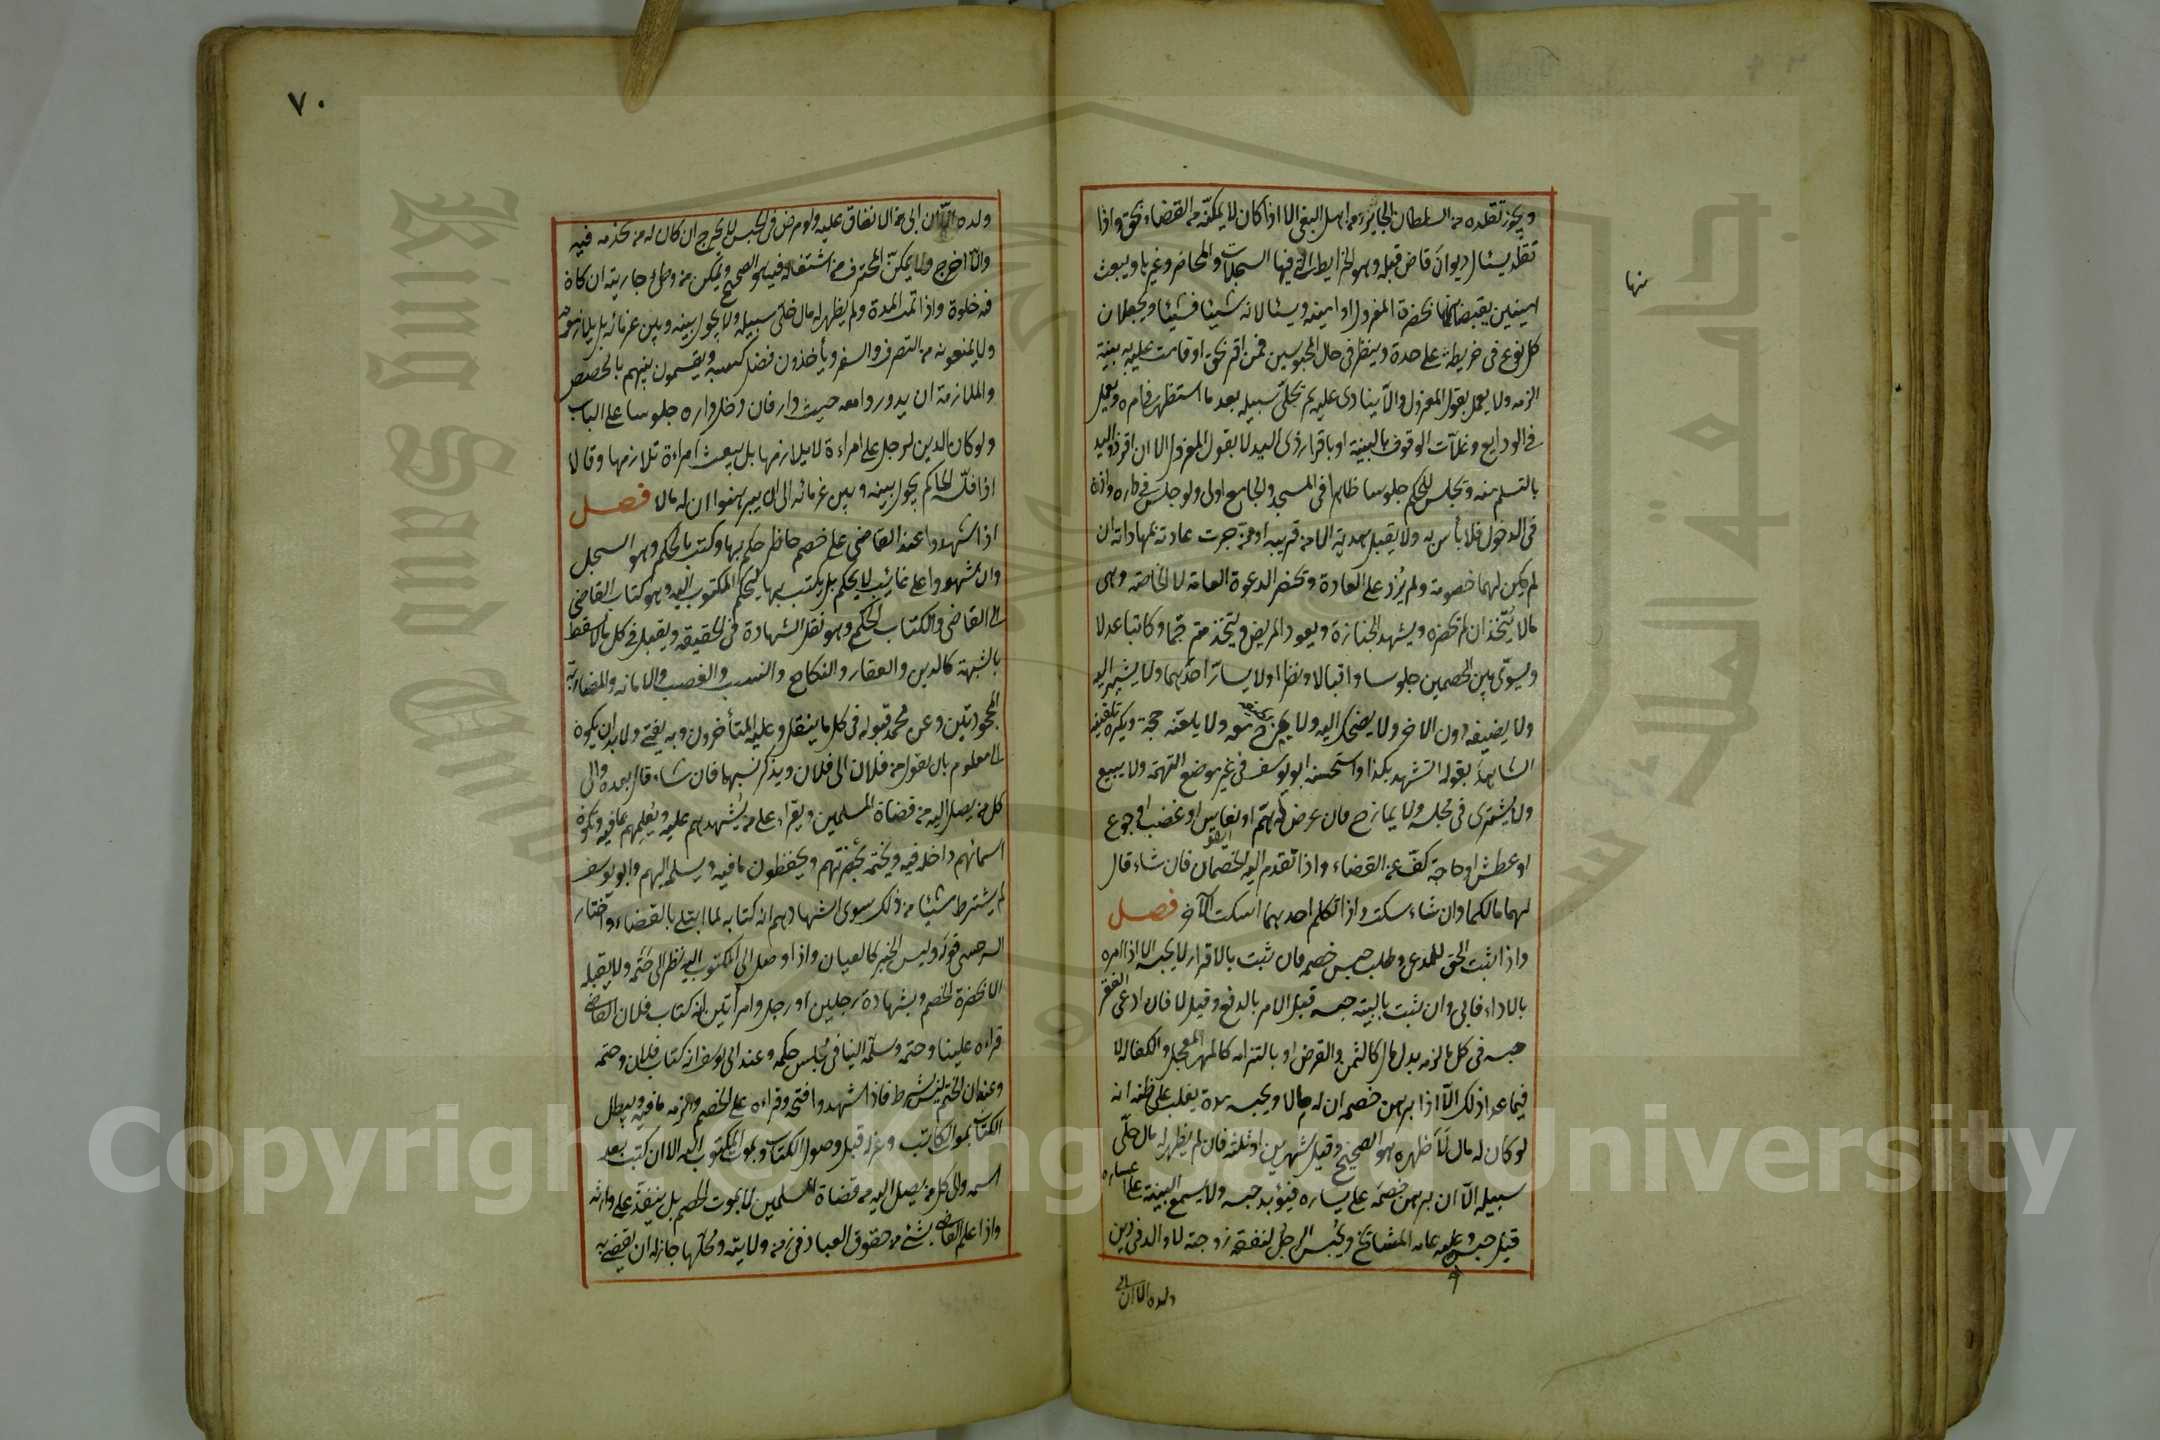 ويجوز تقلده من السلطان الجاير ومن اهل البغى الا اذا كان لا يمكنه من القضاء بحق واذا
تقلد يسئال ديوان قاض قبله وهو الخرايط التى فيها السجلات والمحاضر وغيرها ويبعث
امينين يقبضانها بحضرة المعزول او امينه ويسئالانه شيئا فشيئا ويجعلان
كل نوع فى خريطة على حدة وينظر فى حال المحبوسين فمن اقر بحق او قامت عليه بينة
الزمه ولا يعمل بقول المعزول والا ينادى عليه ثم يخلى سبيله بعد ما استظهر فى امره ويعمل
فى الودايع وغلات الوقوف بالبينة او باقرار ذى اليد لا بقول المعزول الا ان اقر ذو اليد
بالتسلم منه ويجلس للحكم جلوسا ظاهرا فى المسجد والجامع اولى ولو جلس فى داره واذن
فى الدخول فلا بأس به ولا يقبل هدية الا من قريبه او ممن جرت عادته بمهاداته ان
لم يكن لهما خصومة ولم يزد على العادة ويحضر الدعوة العامة لا الخاصة وهى
مالا يتخذ ان لم يحضره ويشهد الجنازة ويعود المريض ويتخذ مترجما وكاتبا عدلا
ويسوى بين الخصمين جلوسا واقبالا ونظرا ولا يسار احدهما ولا يشير اليه
ولا يضيفه دون الاخر ولا يضحك اليه ولا يمزح معه ولا يلقنه حجة ويكره تلقينه
الشاهد بقوله اتشهد بكذا واستحسنه ابو يوسف فى غير موضع التهمة ولا يبيع
ولا يشترى فى مجلسه ولا يمازح فان عرض له هم او نعاس او غضب او جوع
او عطش او حاجة كف عن القضاء واذا تقدم اليه الخصمان فان شاء قال
لهما مالكما وان شاء سكت واذا تكلم احدهما اسكت الآخر فصل
واذا ثبت الحق للمدعى وطلب حبس خصمه فان ثبت بالاقرار لا يحبسه الا اذا امره
بالاداء فابى وان ثبت بالبينة حبسه قبل الامر بالدفع وقيل لا فان ادعى الفقر
حبسه فى كل ما لزمه بدل مال كالثمن والقرض او بالتزامه كالمهر المعجل والكفالة لا
فيما عدا ذلك الا اذا برهن خصمه ان له مالا ويحبسه مدة يغلب على ظنه انه
لو كان له مال لاظهره هو الصحيح وقيل شهرين او ثلثة فان لم يظهر له مال خلى
سبيله الا ان برهن خصمه على يساره فيؤبد حبسه ولا يسمع البينة على اعساره
قبل حبسه وعليه عامة المشائخ ويحبس الرجل لنفقة زوجته لا والد فى دين
ولده الا ان ابى
منها
٧٠
ولده الا ان ابى من الانفاق عليه ولو مرض فى الحبس لا يخرج ان كان له من يخدمه فيه
والا اخرج ولا يمكن المحترف من اشتغاله فيه هو الصحيح ويمكن من وطئ جاريته ان كان
فيه خلوة واذا تمت المدة ولم يظهر له مال خلى سبيله ولا يحول بينه وبين غرمائه بل يلازمونه
ولا يمنعونه من التصرف والسفر ويأخذون فضل كسبه ويقسمون بينهم بالحصص
والملازمة ان يدوروا معه حيث دار فان دخل داره جلوسا على الباب
ولو كان الدين لرجل على امراءة لا يلازمها بل يبعث امراءة تلازمها وقالا
اذا فلسه الحاكم يحول بينه وبين غرمائه الى ان يبرهنوا ان له مالا فصل
اذا شهدوا عند القاضى على خصم حاضر حكم بها وكتب بالحكم وهو السجل
وان شهدوا على غائب لا يحكم بل يكتب بها ليحكم المكتوب اليه وهو كتاب القاضى
الى القاضى والكتاب الحكمى وهو نقل الشهادة فى الحقيقة ويقبل فى كل ما لا يسقط
بالشبهة كالدين والعقار والنكاح والنسب والغصب والامانة والمضاربة
المجحودتين وعن محمد قبوله فى كل ما ينقل وعليه المتأخرون وبه يفتى ولا بد ان يكون
الى معلوم بان يقول من فلان الى فلان ويذكر نسبهما فان شاء قال بعده والى
كل من يصل اليه من قضاة المسلمين ويقراء على من يشهدهم عليه ويعلمهم بما فيه وتكون
اسمائهم داخله فيه ويختمه بحضرتهم ويحفظون ما فيه ويسلمه اليهم وابو يوسف
لم يشترط شيئا من ذلك سوى اشهادهم انه كتابه لما ابتلى بالقضاء واختار
السرخسى قوله وليس الخبر كالعيان واذا وصل الى المكتوب اليه نظر الى ختمه ولا يقبله
الا بحضرة الخصم وبشهادة رجلين او رجل وامرأتين انه كتاب فلان القاضى
قراءه علينا وختمه وسلمه الينا فى مجلس حكمه وعند ابى يوسف انه كتاب فلان وختمه
وعنه ان الختم ليس بشرط فاذا شهدوا فتحه وقراءه على الخصم والزمه ما فيه ويبطل
الكتاب بموت الكاتب وعزله قبل وصول الكتاب وبموت المكتوب اليه الا ان كتب بعد
اسمه والى كل من يصل اليه من قضاة المسلمين لا بموت الخصم بل ينفذ على وارثه
واذا علم القاضى بشئ من حقوق العباد فى زمن ولايته ومحلها جاز له ان يقضى به
King Saud University
جامعة الملك سعود
Copyright © King Saud University